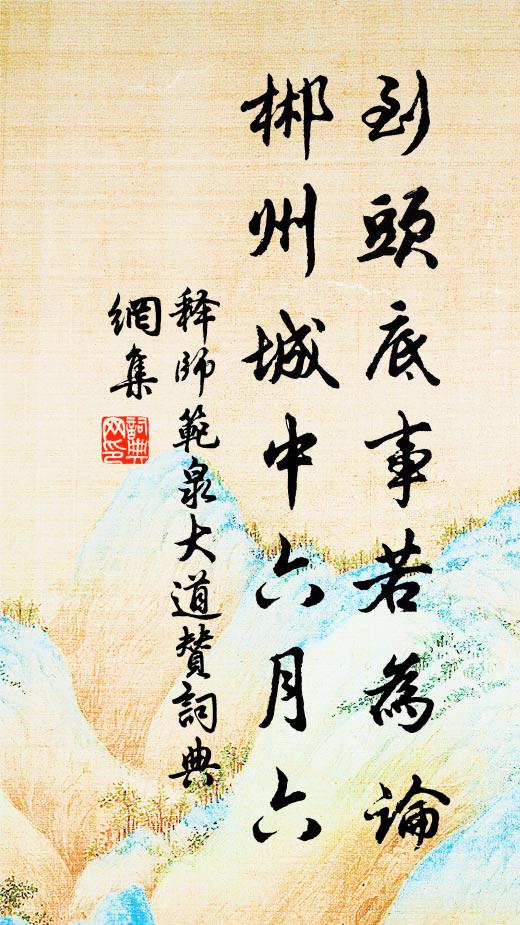 到頭底事若為論
郴州城中六月六
释師範泉大道贊詞典
網集
詞典
网印